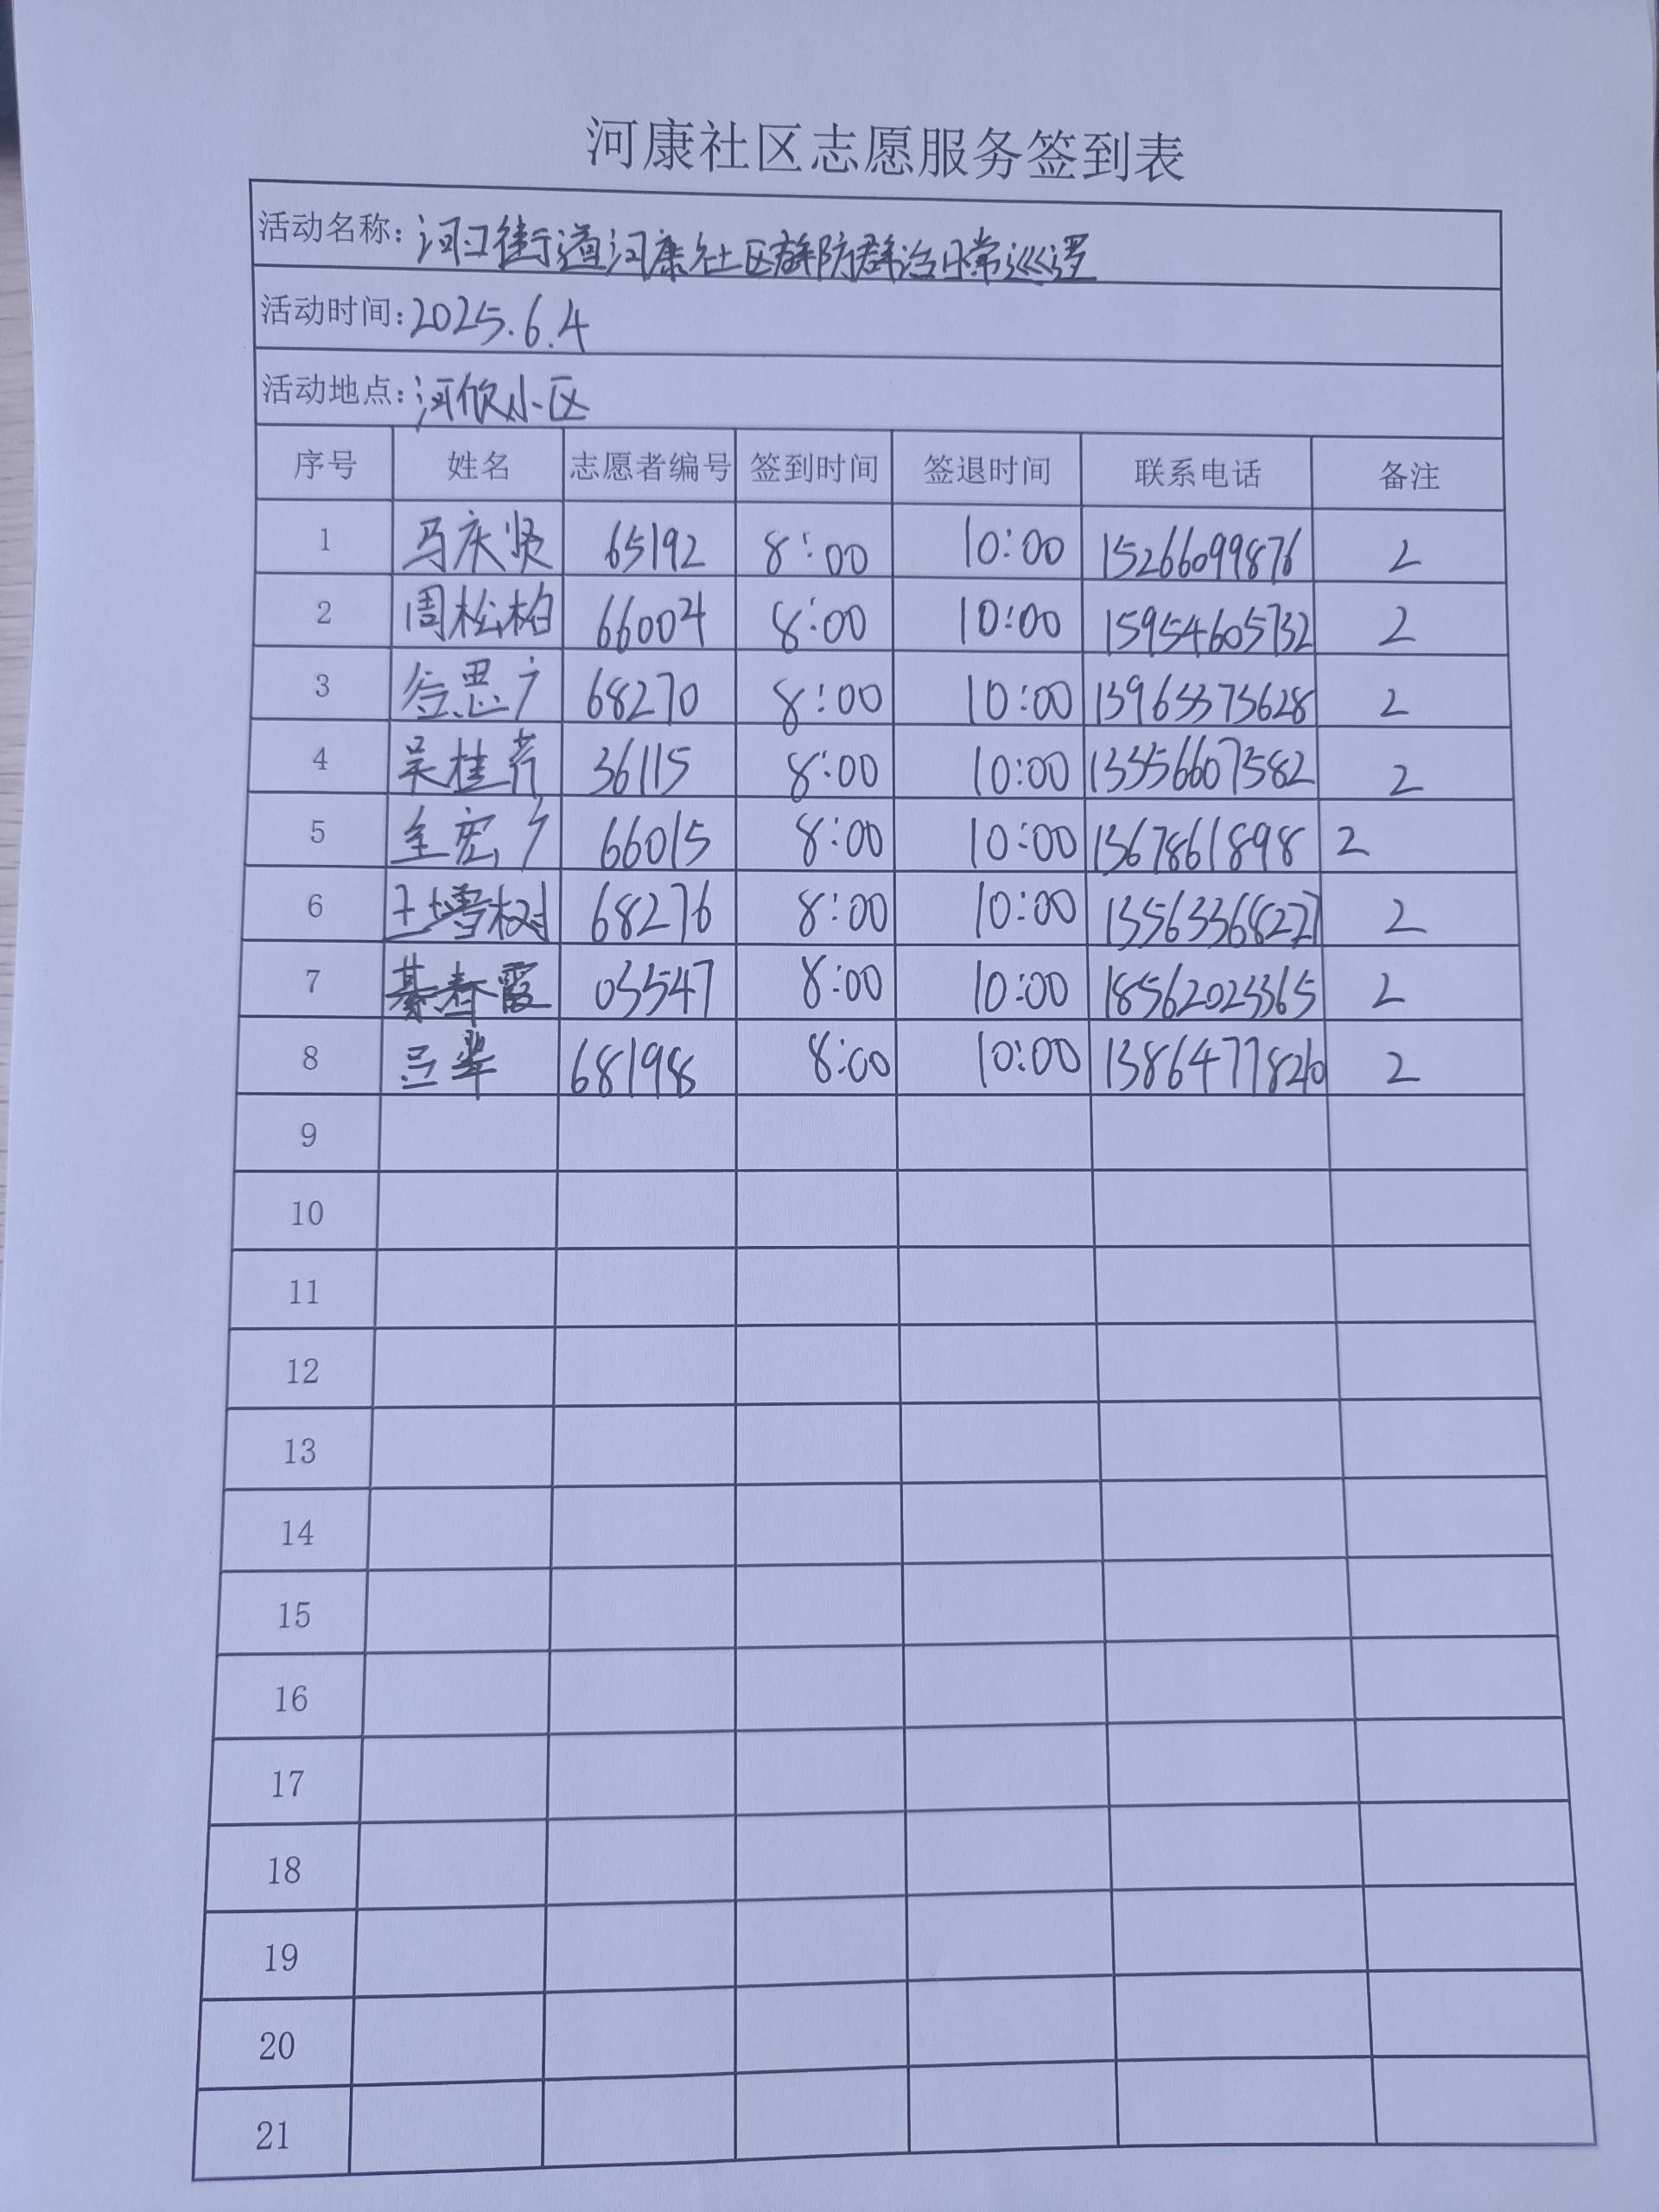 河康社区志愿服务签到表
活动名称: 河口街道河康社区群防群治日常巡逻
活动时间: 2025.6.4
活动地点: 河欣小区
序号 姓名 志愿者编号 签到时间 签退时间 联系电话 备注
1 马庆贤 65192 8:00 10:00 15266099876 2
2 周松柏 66004 8:00 10:00 15954605732 2
3 68270 8:00 10:00 13963373628 2
4 吴桂芹 36115 8:00 10:00 13356607582 2
5 66015 8:00 10:00 1367861898 2
6 68276 8:00 10:00 13563368227 2
7 綦春霞 03547 8:00 10:00 18562023365 2
8 68198 8:00 10:00 2
9
10
11
12
13
14
15
16
17
18
19
20
21